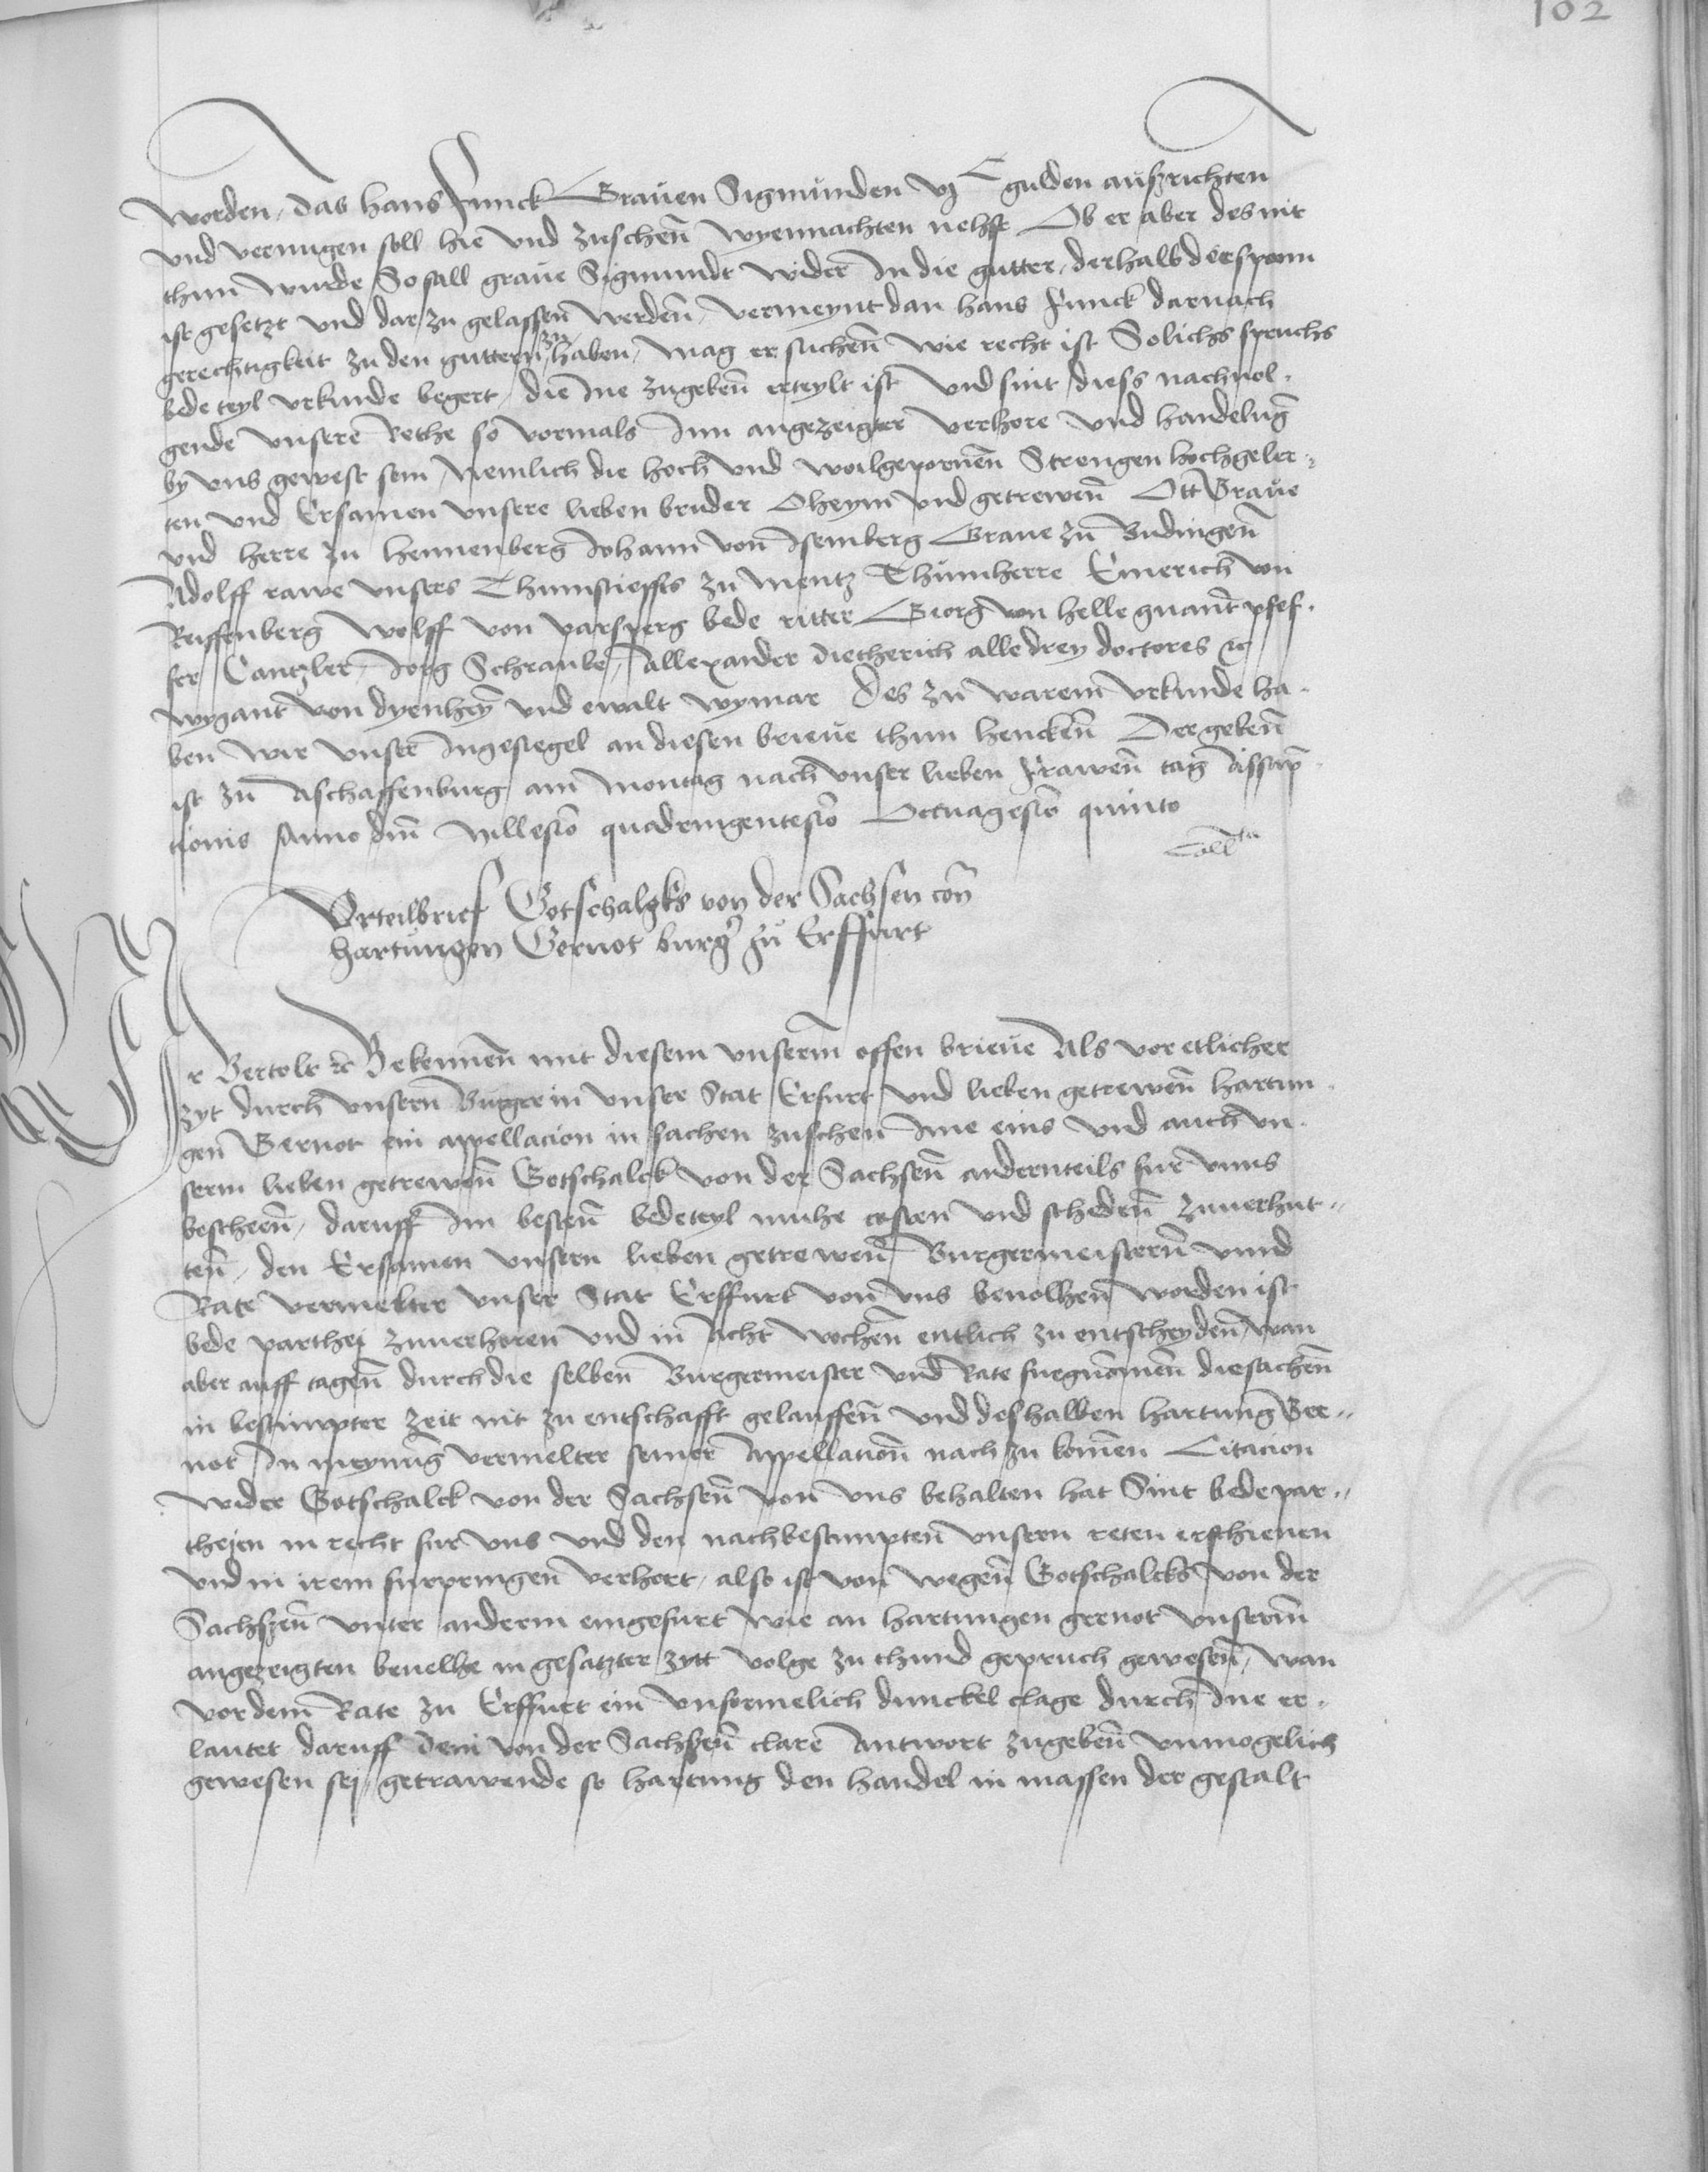 102
worden, das hans Funck Grauen Sigmunden vj C gulden außrichten
vnd vernugen soll hie vnd zuschen wyennachten nehst Ob er aber des nit
thun wurde So sall graue Sigmundt wider In die gutter, derhalb der spann
ist gesetzt vnd dar zu gelassen werden, vermeynt dan hans Funck darnach
gerechtigkeit zu den guttern zu haben, mag er suchen wie recht ist Solichs spruchs
bede teyl vrkunde begert, die Ine zugeben erteylt ist vnd sint diess nachuol-
gende vnsere Rethe so vormals Inn angezeigter verhore vnd handelung
by vns gewest sein, Nemlich die hoch vnd woilgepornen Strengen hochgeler-
ten vnd Ersamen vnsere lieben bruder Oheym vnd getrewen Ott Graue
vnd herre zu hennenberg Johann von Isemberg Graue zu Budingen
Adolff rawe vnsers Thumstieffts zu Mentz Thumherre Emerich von
Reiffenberg Wolff von parsperg bede ritter Georg von helle gnant pfef-
fer Cantzler, Jorg Schraube, Allexander diethrich alle drey doctores etc
wygant von dyenheym vnd ewalt wymar Des zu warem vrkunde ha-
ben wir vnser Ingesiegel an diesen brieue thun hencken Der geben
ist zu Aschaffenburg am Montag nach vnser lieben frawen tag Assump-
tionis Anno dm Millesio quadringentesio Octuagesio quinto
Coll ta
Vrteilbrief Gotschalgks von der Sachsen con
hartungen Gernot burg zu Erffurt
r Bertolt etc Bekennen mit diesem vnserm offen brieue Als vor etlicher
zyt durch vnsern Burger in vnser Stat Erfurt vnd lieben getrewen hartun-
gen Gernot ein appellacion in sachen zuschen Ime eins vnd auch vn-
serm lieben getrewen Gotschalck von der Sachsen andernteils fur vnns
bescheen, daruff Im besten bedeteyl muhe costen vnd scheden zuuerhut-
ten, den Ersamen vnsern lieben getrewen Burgermeistern vnnd
Rate vermelter vnser Stat Erffurt von vns beuolhen worden ist
bede parthej zuuerhoren vnd in Acht wochen entlich zu entscheyden, wan
aber auff tagen durch die selben Burgermeister vnd Rate furgnomen die sachen
in bestimpter zeit nit zu entschafft gelauffen vnd deshalben hartung Ger-
not In meynung vermelter seiner Appellation nach zu komen Citacion
wider Gotschalck von der Sachsen von vns behalten hat Sint bede par-
thejen in recht fur vns vnd den nachbestimpten vnsern reten erschienen
vnd in irem furpringen verhort, also ist von wegen Gotschalcks von der
Sachszen vnter anderm eingefurt wie an hartungen gernot vnserm
angezeigten beuelhe in gesatzter zytt volge zu thund gepruch gewesen, wan
vor dem Rate zu Erffurt ein vnformelich dunckel clage durch Ine er-
lautet daruff dem von der Sachszen clare Antwort zugeben vnmogelich
gewesen sej, getrawende so hartung den handel in massen der gestalt